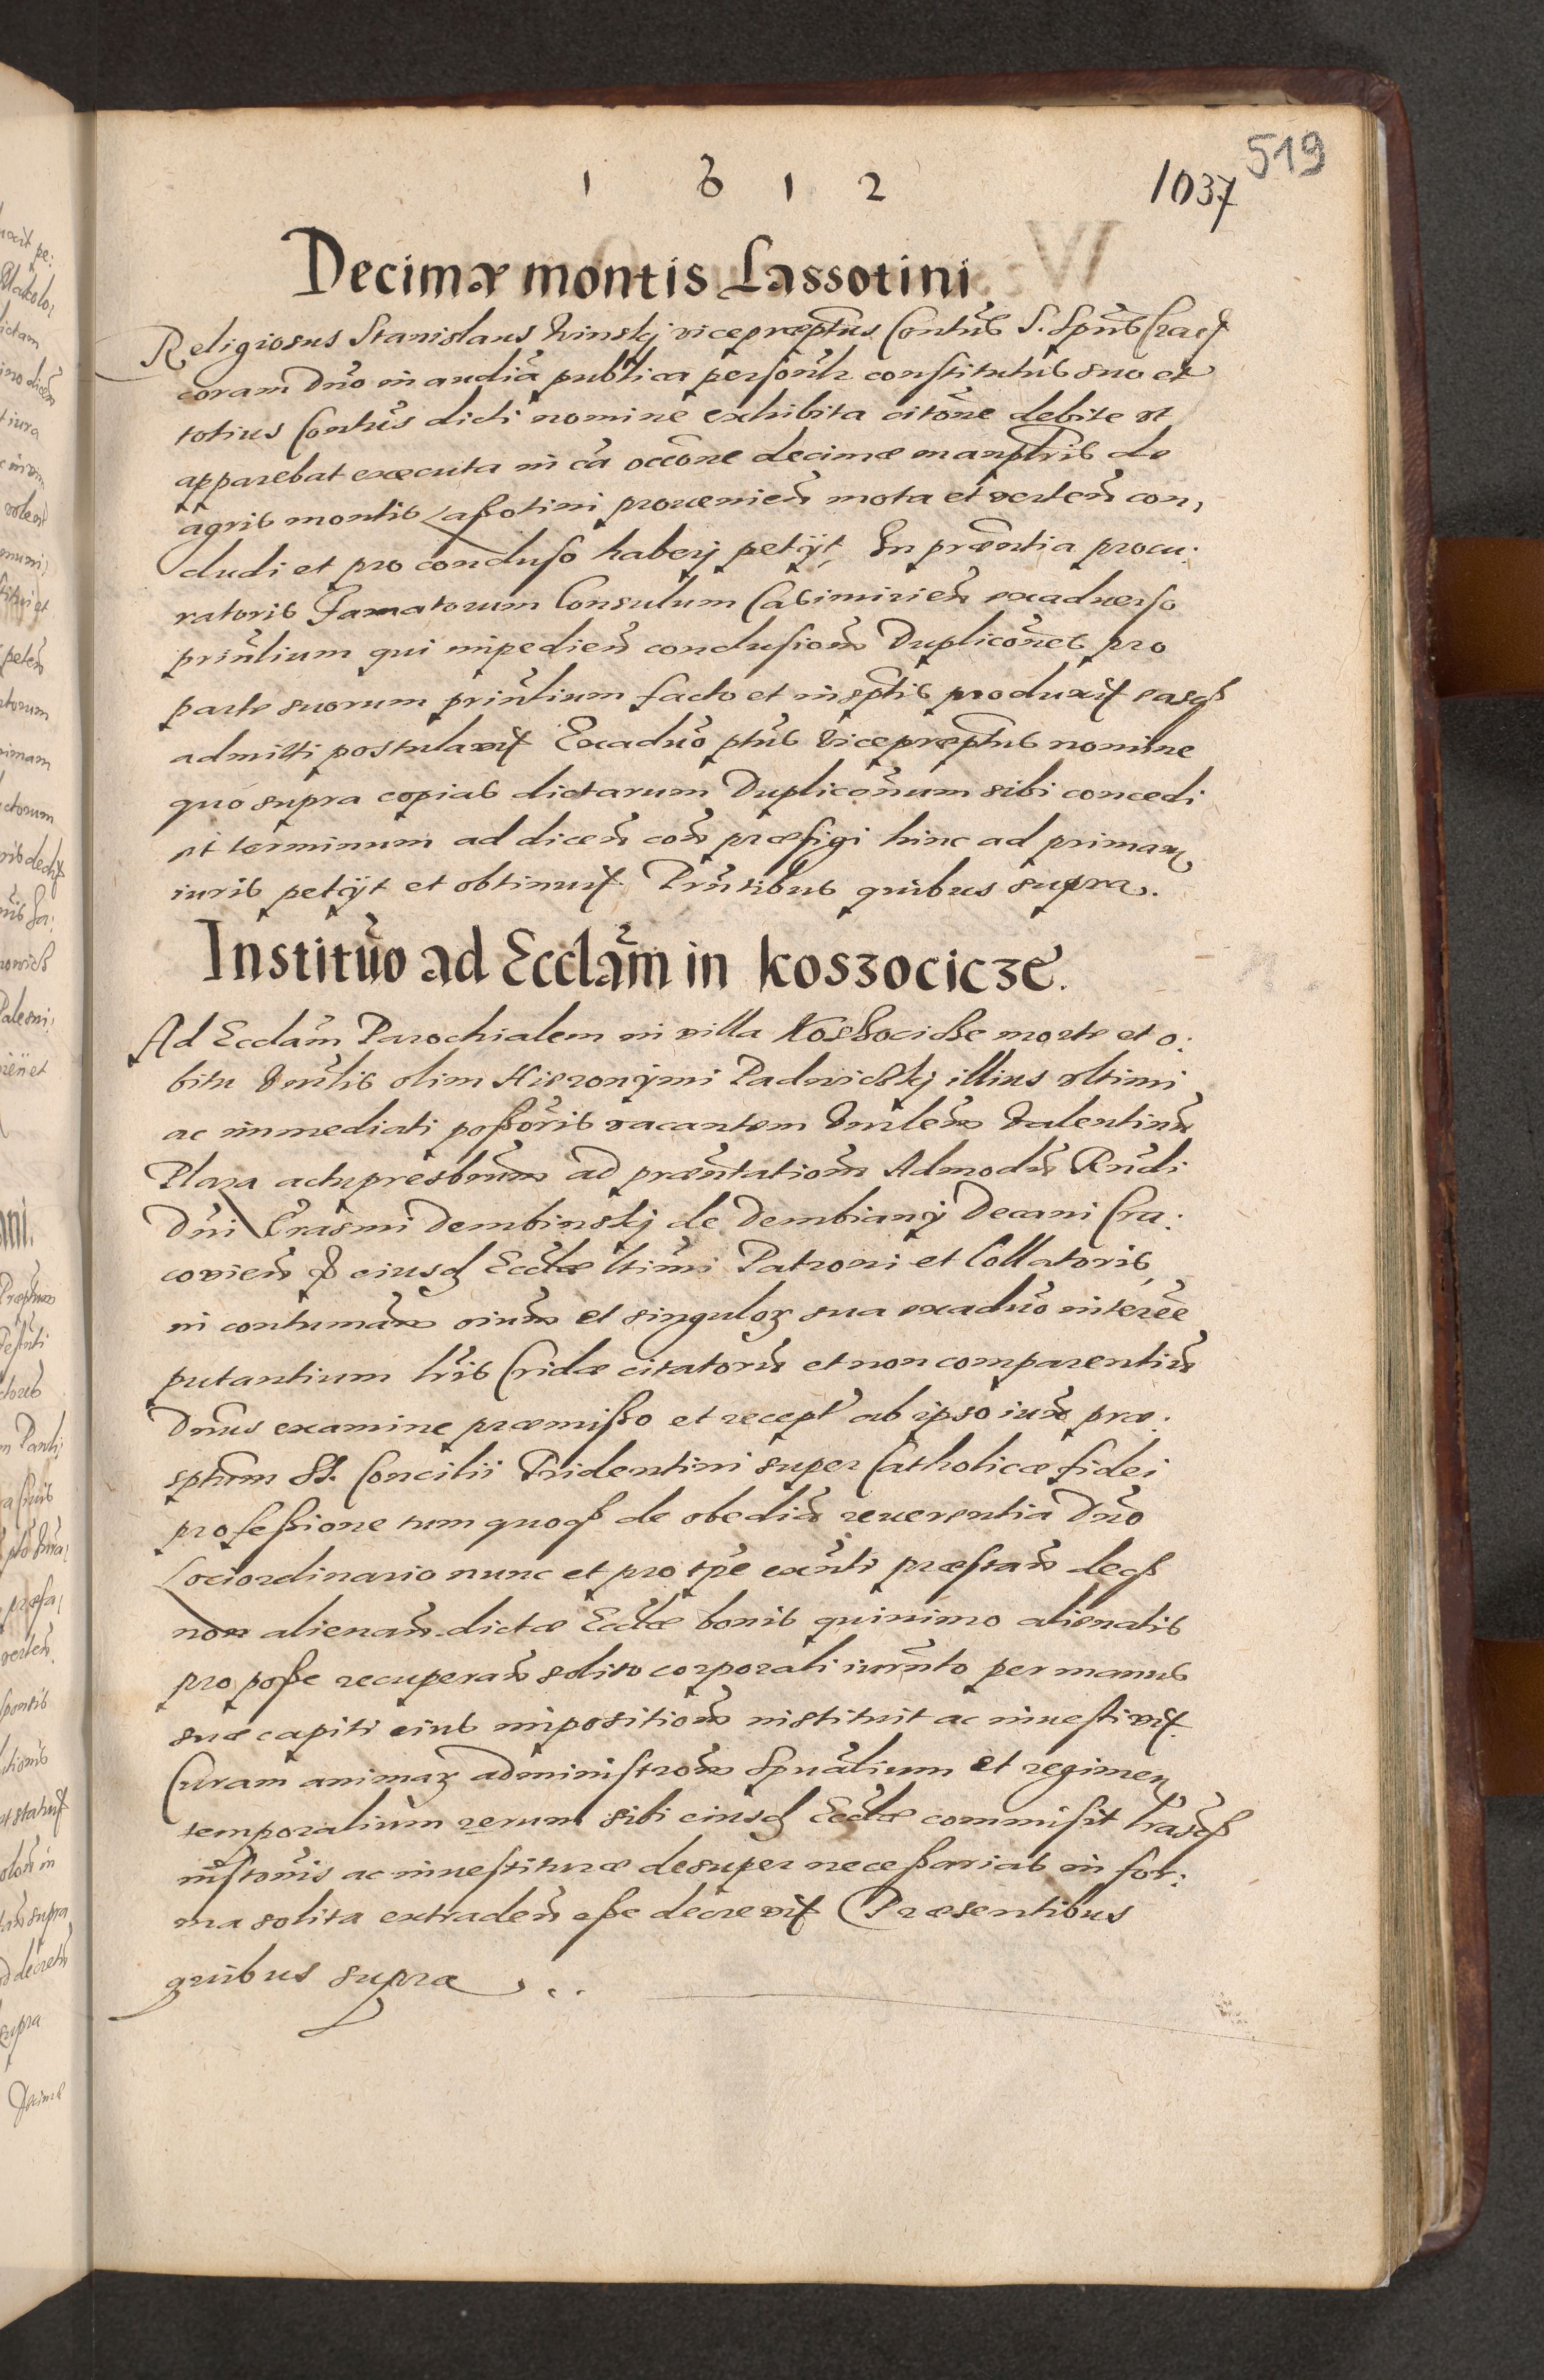 519
1 6 1 2
1037
Decimæ montis Lassotini
Religiosus Stanislaus Zinskj vicepræptus Contus S. Spus Crac
coram Dno in audia publica personlr constitutus suo et
totius Contus dicti nomine exhibita citone debite vt
apparebat executa in ca occone decimæ manplris de
agris montis Laßotini prouenien mota et verten con,
cludi et pro concluso haberj petÿt, In præntia procu:
ratoris Famatorum Consulum Casimirien exaduerso
prinlium qui impedien conclusionem Duplicones pro
parte suorum prinlium facto et in sptis produxit easq
admitti postulauit Exaduo ptus Vicepræptus nomine
quo supra copias dictarum Dupliconum sibi concedi
et terminum ad dicen con præfigi hinc ad primam
iuris petÿt et obtinuit. Prntibus quibus supra.
Institũo ad Ecclãm in koszocicze.
Ad Ecclam Parochialem in villa Koszocicze morte et o:
bitu Vnlis olim Hieronymi Padnicskj illius vltimi
ac immediati poßoris vacantem Vnlem Valentinum
Plaza actupresbrum ad præntationem Admodum Rndi
Dni Erasmi Dembinskj de Dembiany Decani Cra:
couien & eiusd Ecclæ ltimi Patroni et Collatoris,
in contumam oium et singulor sua exaduo interee
putantium lris Cridæ citatorum et non comparentium
Dnus examine præmißo et recept ab ipso iux præ:
sptum SS. Concilii Tridentini super Catholicæ fidei
profeßione tum quoq de obedia reuerentia Dno
Lociordinario nunc et pro tpe exnti præstan deq
non alienan dictæ Ecclæ bonis quinimo alienatis
pro poße recuperan solito corporali iurnto per manus
suæ capiti eius impositionem instituit ac inuestiuit.
Curam animar administrom Spualium et regimen
temporalium rerum sibi eiusd Ecclæ commisit lrasq
instonis ac inuestituræ desuper neceßarias in for:
ma solita extraden eße decreuit Præsentibus
quibus supra